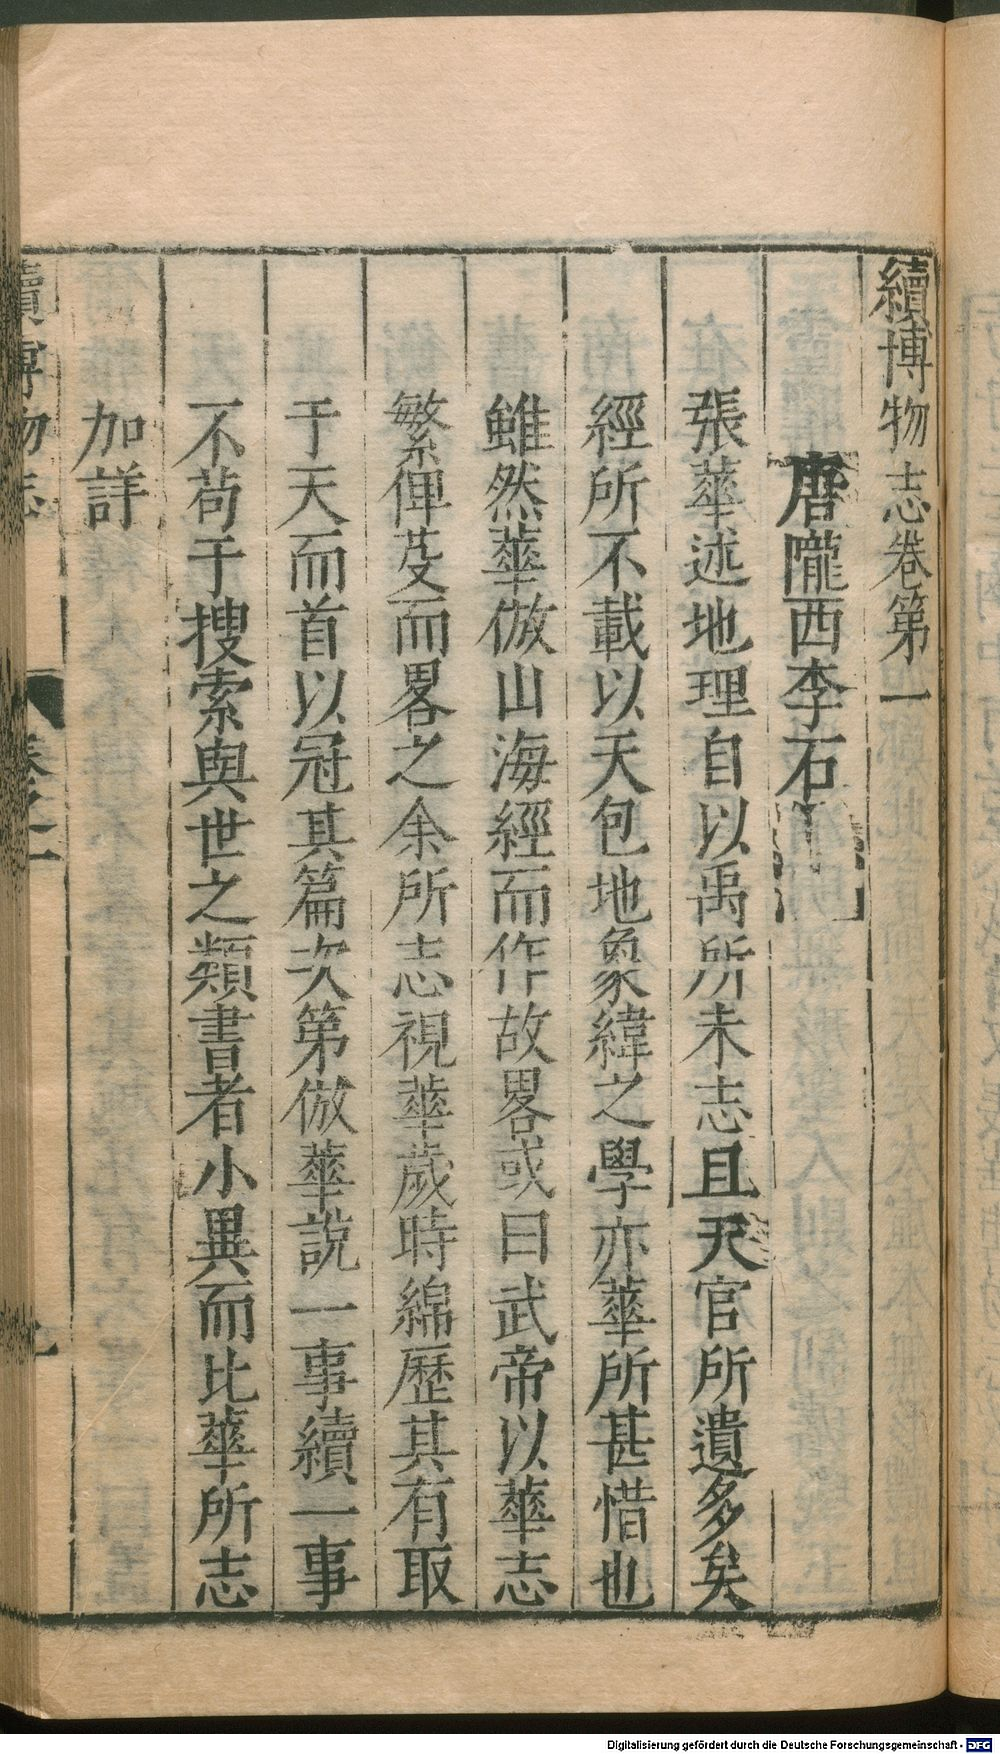 續博物志卷第一
唐隴西李石
張華述地理自以禹所未志且天官所遺多矣
經所不載以天包地象緯之學亦華所甚惜也
雖然華倣山海經而作故畧或曰武帝以華志
繁俾芟而畧之余所志視華歲時綿歷其有取
于天而首以冠其篇次第倣華說一事續一事
不苟于搜索與世之類書者小異而比華所志
加詳
續博物志
卷之一
Digitalisierung gefördert durch die Deutsche Forschungsgemeinschaft - DFG